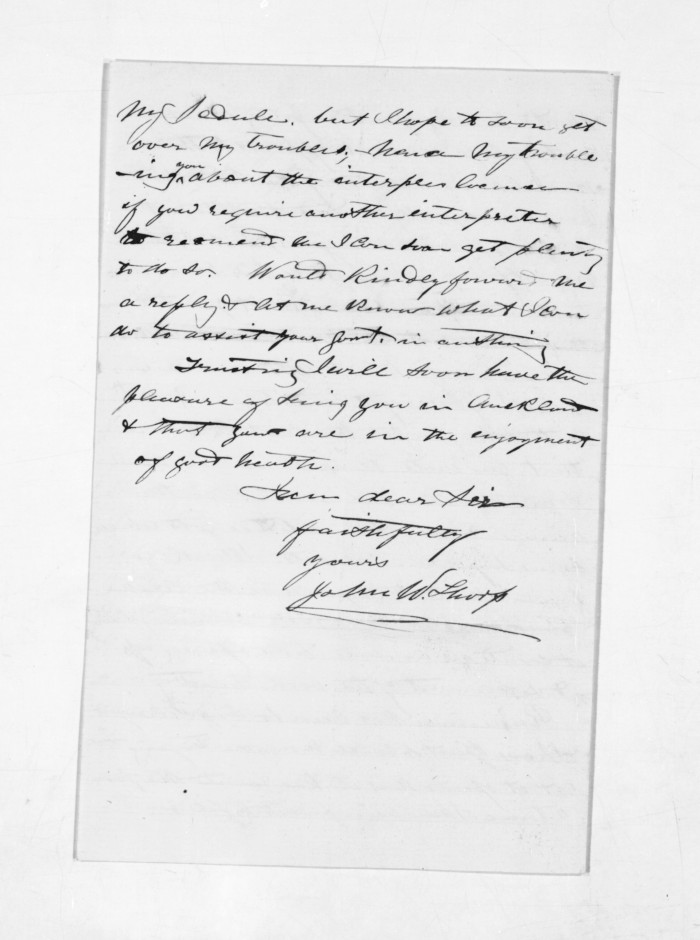 my Schule. but I hope to soon get
over my troubles, hence my trouble
-ing you about the interpers license
if you require another interpreter
to recomend me I can soon get plenty
to do so. Would kindly forward me
a reply & let me know what I can
do to assist your Govt. in anything
Trusting I will soon have the
pleasure of seing you in Auckland
& that you are in the enjoyment
of good heath.
I am dear Sir
faithfully
yours
John W. Thorp